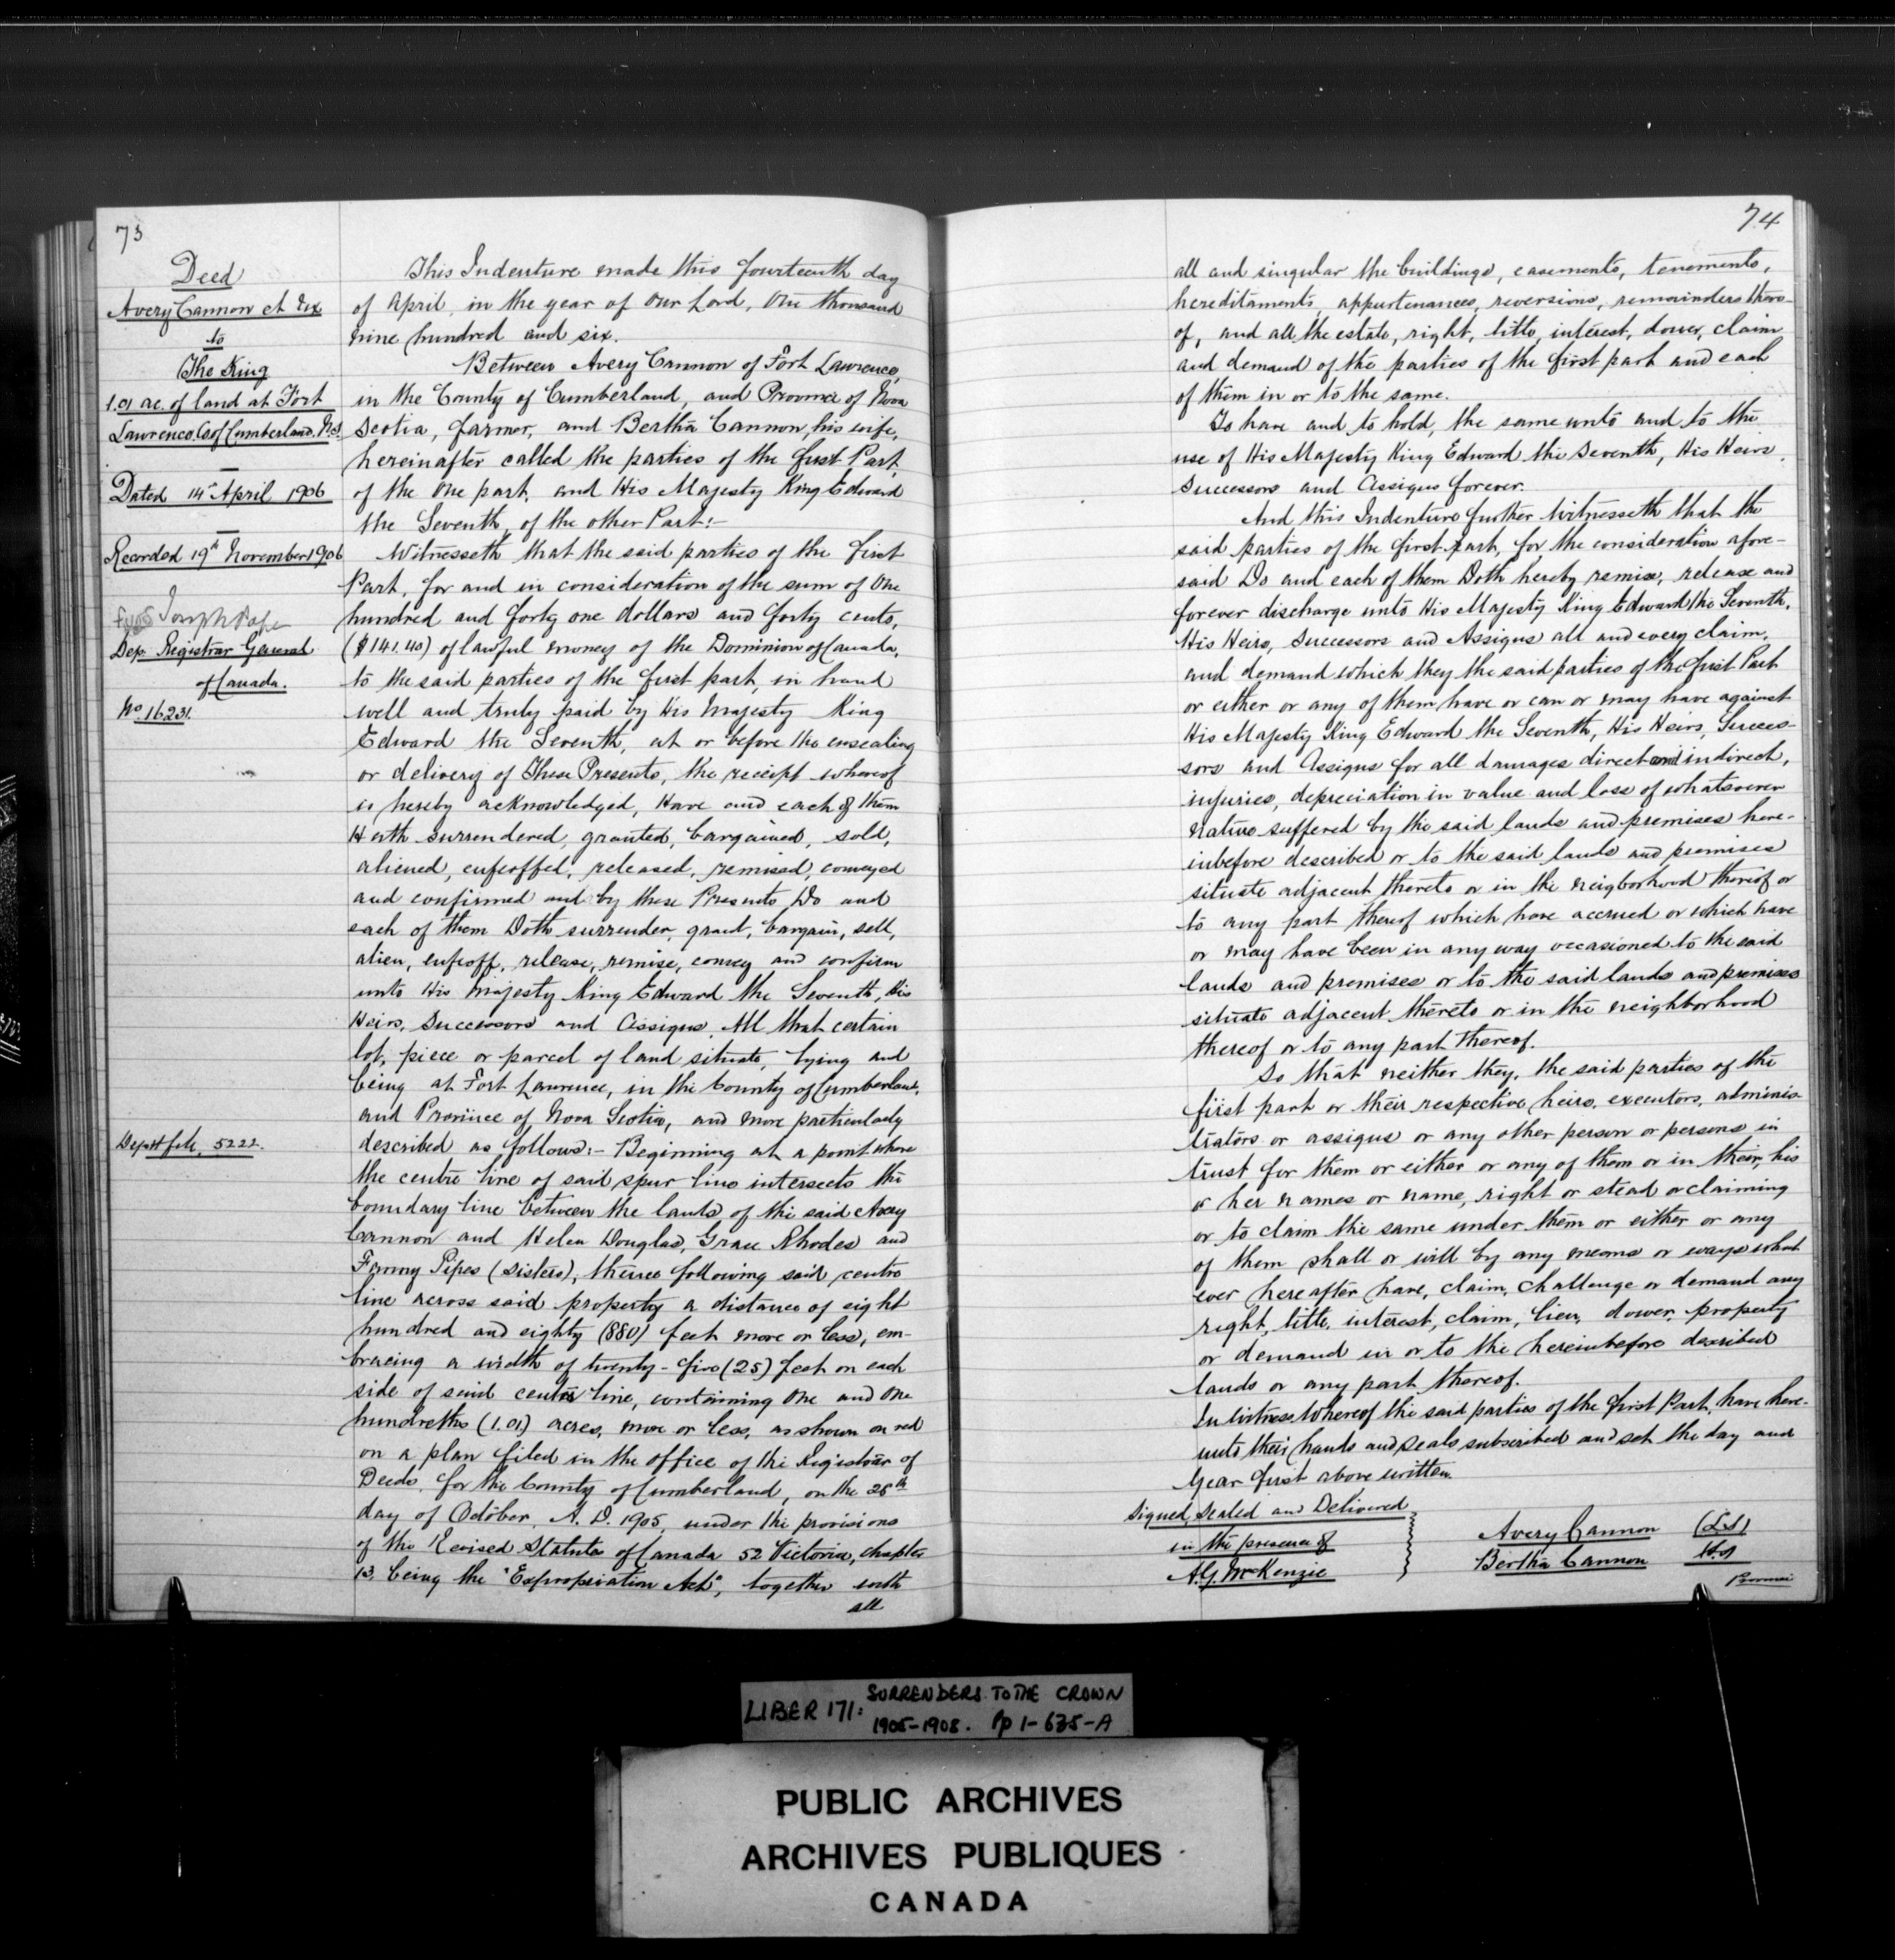 73
Deed
Avery Cannon et Ux
to
The King
1.01 ac. of land at Fort
Lawrence, Co of Cumberland, N.S.
Dated 14th April 1906
Recorded 19th November 1906
Joseph Pope
Dep. Registrar General
of Canada.
No. 16231.
Dep'tt file, 5222.
This Indenture made this fourteenth day
of April, in the year of Our Lord, One thousand
nine hundred and six.
Between Avery Cannon of Fort Lawrence,
in the County of Cumberland, and Province of Nova
Scotia, farmer, and Bertha Cannon, his wife,
hereinafter called the parties of the first Part,
of the One part, and His Majesty King Edward
the Seventh, of the other Part:-
Witnesseth that the said parties of the first
Part, for and in consideration of the sum of One
hundred and forty one dollars and forty cents,
($141.40) of lawful money of the Dominion of Canada,
to the said parties of the first part, in hand
well and truly paid by His Majesty King
Edward the Seventh, at or before the ensealing
or delivery of These Presents, the receipt whereof
is hereby acknowledged, Have and each of them
Hath surrendered, granted, bargained, sold,
aliened, enfeoffed, released, remised, conveyed
and confirmed and by these Presents Do and
each of them Doth surrender, grant, bargain, sell,
alien, enfeoff, release, remise, convey and confirm
unto His Majesty King Edward the Seventh, His
Heirs, Successors and Assigns, All that certain
lot, piece or parcel of land situate, lying and
being at Fort Lawrence, in the County of Cumberland,
and Province of Nova Scotia, and more particularly
described as follows:- Beginning at a point where
the centre line of said spur line intersects the
boundary line between the lands of the said Avery
Cannon and Helen Douglas, Grace Rhodes and
Fanny Pipes (sisters), thence following said centre
line across said property a distance of eight
hundred and eighty (880) feet more or less, em-
bracing a width of twenty-five (25) feet on each
side of said centre line, containing One and One
hundreths (1.01) acres, more or less, as shown on red
on a plan filed in the office of the Registrar of
Deeds, for the County of Cumberland, on the 28th
day of October, A. D. 1905, under the provisions
of the Revised Statute of Canada 52 Victoria, chapter
13, being the "Expropriation Act", together with
all
74
all and singular the buildings, easements, tenements,
hereditaments, appurtenances, reversions, remainders there-
of, and all the estate, right, title, interest, dower, claim
and demand of the parties of the first part and each
of them in or to the same.
To have and to hold, the same unto and to the
use of His Majesty King Edward the Seventh, His Heirs,
Successors and Assigns forever.
And this Indenture further Witnesseth that the
said parties of the first part, for the consideration afore-
said Do and each of them Doth hereby remise, release and
forever discharge unto His Majesty King Edward the Seventh,
His Heirs, Successors and Assigns all and every claim,
and demand which they the said parties of the first Part
or either or any of them have or can or may have against
His Majesty King Edward the Seventh, His Heirs, Succes-
sors and Assigns for all damages direct and indirect,
injuries, depreciation in value and loss of whatsoever
nature suffered by the said lands and premises here-
inbefore described or to the said lands and premises
situate adjacent thereto or in the neigborhood thereof or
to any part thereof which have accrued or which have
or may have been in any way occasioned to the said
lands and premises or to the said lands and premises
situate adjacent thereto or in the neighborhood
thereof or to any part thereof.
So that neither they, the said parties of the
first part or their respective heirs, executors, adminis-
trators or assigns or any other person or persons in
trust for them or either or any of them or in their, his
or her names or name, right or stead or claiming
or to claim the same under them or either or any
of them shall or will by any means or ways what
ever hereafter have, claim, challenge or demand any
right, title, interest, claim, lien, dower, property
or demand in or to the hereinbefore described
lands or any part thereof.
In Witness Whereof the said parties of the first Part, have here-
unto their hands and seals subscribed and set the day and
year first above written.
Signed, Sealed and Delivered
in the presence of
A. G. McKenzie
Avery Cannon (L.S)
Bertha Cannon L.S
Province
LIBER 171:
SURRENDERS TO THE CROWN
1905-1908. Pp 1-635-A
PUBLIC ARCHIVES
ARCHIVES PUBLIQUES
CANADA